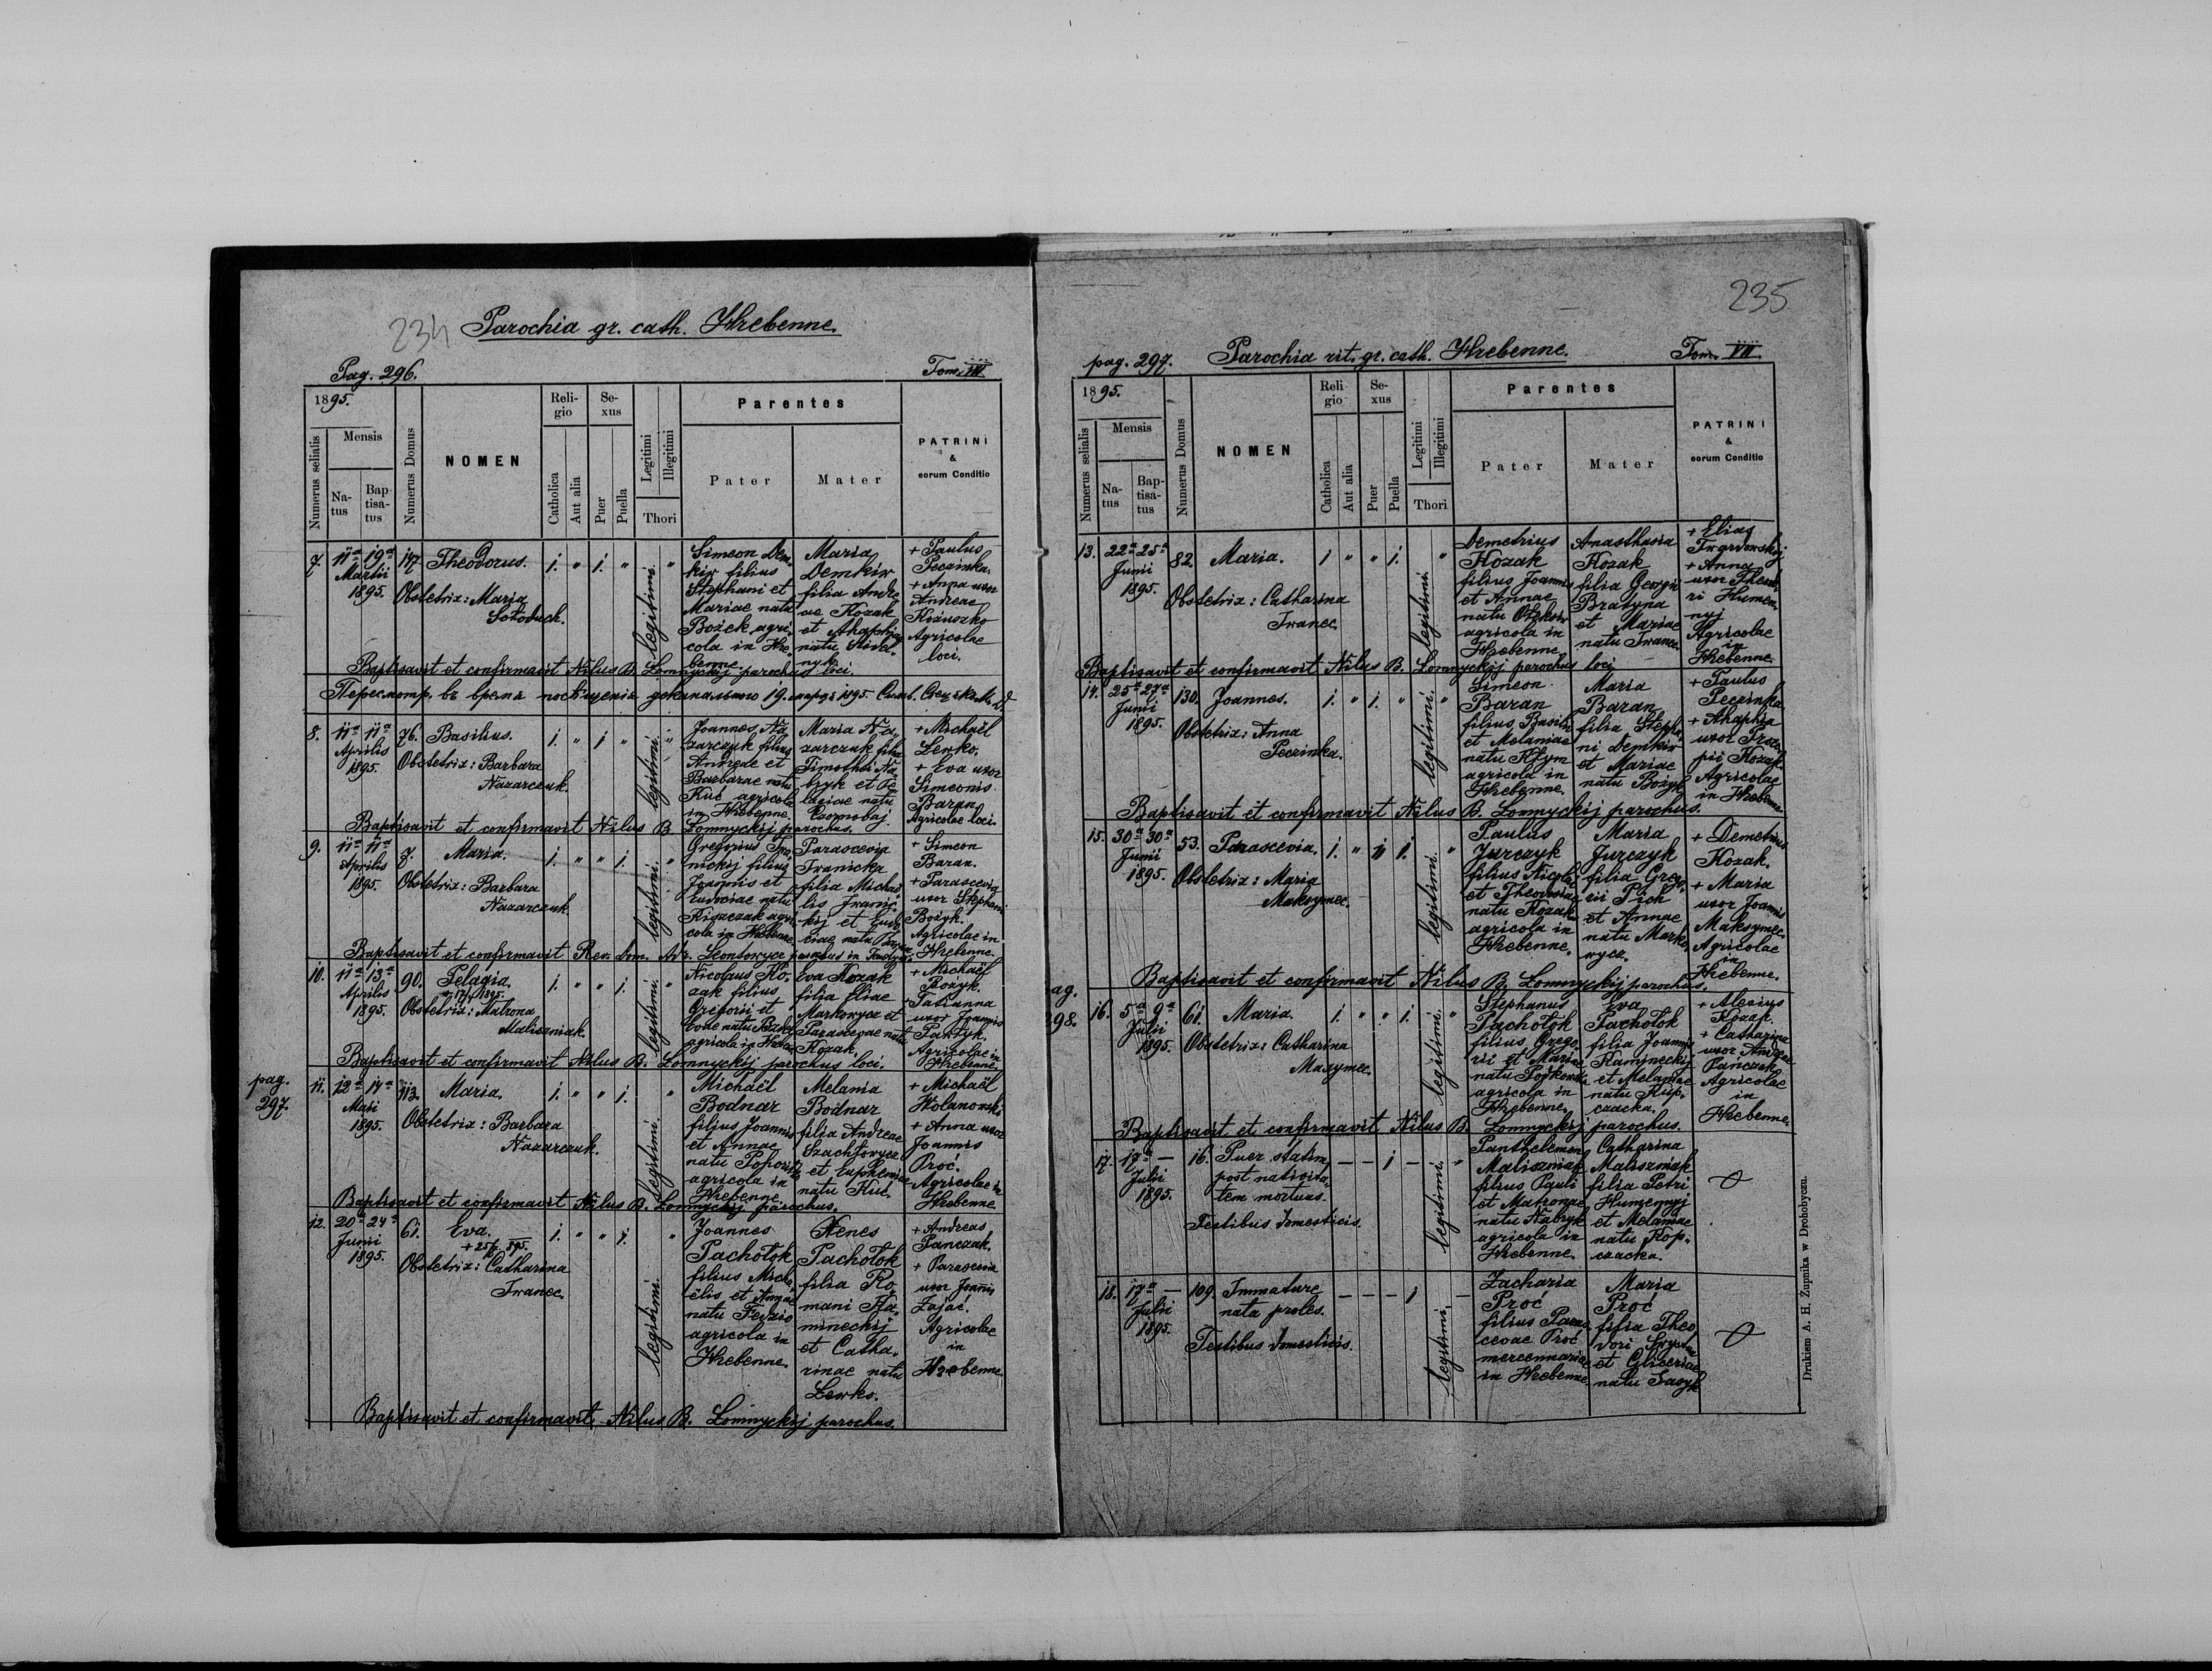 234 Parochia gr. cath. Hrebenne.
Pag. 296. Tom. VII
1895.
Numerus serialis
Mensis
Natus
Baptisatus
Numerus Domus
NOMEN
Religio
Catholica
Aut alia
Sexus
Puer
Puella
Legitimi
Illegitimi
Thori
Parentes
Pater
Mater
PATRINI
&
eorum Conditio
7. 11a 19a Martii 1895. 147. Theodorus. 1. " 1. " legitimi. "
Obstetrix: Maria
Sołoduch.
Simeon Dem-
kiw filius
Stephani et
Mariae natu
Bożek agri-
cola in Hre-
benne.
Maria
Demkiw
filia Andre
ae Kozak
et Ahaphia
natu
+ Paulus
Peczinka.
+ Anna uxor
Andreae
Kożuszko
Agricolae
loci.
Baptisavit et confirmavit Nilus B. Lomnyckij parochus loci.
19. 1895.
8. 11a 11a Aprilis 1895. 76. Basilius. 1. " 1 " legitimi. "
Obstetrix: Barbara
Nazarczuk.
Joannes Na-
zarczuk filius
Andreae et
Barbarae natu
Kuć agricola
in Hrebenne.
Maria Na-
zarczuk filia
Timothei Na-
bzyk et Pe-
lagiae natu
Czornobaj.
+ Michaël
Lewko.
+ Eva uxor
Simeonis
Baran
Agricolae loci.
Baptisavit et confirmavit Nilus B Lomnyckij parochus.
9. 11a 11a Aprilis 1895. 7. Maria. 1. " " 1. legitimi. "
Obstetrix: Barbara
Nazarczuk
Gregorius Iwa-
nickij filius
Joannis et
Eudociae natu
Kiszczak agri-
cola in Hrebenne.
Parascevia
Iwanicka
filia Michaë-
lis Iwanic-
kij et Eudo-
ciae natu
+ Simeon
Baran.
+ Parascevia
uxor Stephani
Bożyk.
Agricolae in
Hrebenne.
Baptisavit et confirmavit Rev. dom. Leontowycz parochus in
10. 11a 13a Aprilis 1895. 90. Pelagia. 1. " " 1. legitimi. "
Obstetrix: Matrona
Maliszniak.
Nicolaus Ko-
zak filius
Gregorii et
Evae natu
agricola in
Eva Kozak
filia Eliae
Markowycz et
Parascevae natu
Kozak.
+ Michaël
Bożyk.
+ Tatianna
uxor Joannis
Pawłyk.
Agricolae in
Hrebenne.
Baptisavit et confirmavit Nilus B. Lomnyckij parochus loci.
pag.
297.
11. 12a 14a Maii 1895. 113. Maria. 1. " " 1. legitimi. "
Obstetrix: Barbara
Nazarczuk.
Michaël
Bodnar
filius Joannis
et Annae
natu
agricola in
Hrebenne.
Melania
Bodnar
filia Andreae
Szachłowycz
et Euphemiae
natu Kuć.
+ Michaël
Wolanowski
+ Anna uxor
Joannis
Proć.
Agricolae in
Hrebenne
Baptisavit et confirmavit Nilus B. Lomnyckij parochus.
12. 20a 24a Junii 1895. 61. Eva. 1. " " 1. legitimi. "
Obstetrix: Catharina
Iwanec.
Joannes
Pachołok
filius Micha-
ëlis et Annae
natu Fedzio
agricola in
Hrebenne.
Xenes
Pachołok
filia Ro-
mani Ka-
mineckij
et Catha-
rinae natu
Lewko.
+ Andreas
Panczak.
+ Parascevia
uxor Joannis
Zając.
Agricolae
in
Hrebenne.
Baptisavit et confirmavit Nilus B. Lomnyckij parochus.
235
pag. 297. Parochia rit. gr. cath. Hrebenne. Tom. VII.
1895.
Numerus serialis
Mensis
Natus
Baptisatus
Numerus Domus
NOMEN
Religio
Catholica
Aut alia
Sexus
Puer
Puella
Legitimi
Illegitimi
Thori
Parentes
Pater
Mater
PATRINI
&
eorum Conditio
13. 22a 25a Junii 1895. 82. Maria. 1 " " 1. legitimi. "
Obstetrix: Catharina
Iwanec
Demetrius
Kozak
filius Joannis
et Annae
natu Ołeksiw
agricola in
Hrebenne
Anasthasia
Kozak
filia Georgii
Bratyna
et Mariae
natu Iwanec.
+ Elias
Twardowskij
+ Anna
uxor Theodo-
ri Humen-
nyj
Agricolae
in
Hrebenne
Baptisavit et confirmavit Nilus B. Lomnyckij parochus loci
14. 25a 27a Junii 1895. 130. Joannes. 1. " 1. " legitimi. "
Obstetrix: Anna
Peczinka.
Simeon
Baran
filius Basilii
et Melaniae
natu Kłym
agricola in
Hrebenne.
Maria
Baran
filia Stepha-
ni Demkiw
et Mariae
natu Bożyk
+ Paulus
Peczinka
+ Ahaphia
uxor Proco-
pii Kozak
Agricolae
in Hrebenne.
Baptisavit et confirmavit Nilus B. Lomnyckij parochus.
15. 30a 30a Junii 1895. 53. Parascevia. 1. " 1. legitimi. "
Obstetrix: Maria
Maksymec.
Paulus
Jurczyk
filius Nicolai
et Theodosiae
natu Kozak
agricola in
Hrebenne.
Maria
Jurczyk
filia Grego-
rii Pich
et Annae
natu Marko-
wycz.
+ Demetrius
Kozak.
+ Maria
uxor Joannis
Maksymec.
Agricolae
in
Hrebenne.
Baptisavit et confirmavit Nilus B. Lomnyckij parochus.
ag.
298.
16. 5a 9a Julii 1895. 61. Maria. 1. " " 1. legitimi. "
Obstetrix: Catharina
Maxymec.
Stephanus
Pachołok
filius Grego-
rii et Mariae
natu
agricola in
Hrebenne.
Eva
Pachołok
filia Joannis
Kamineckij
et Melaniae
natu Kop-
czacka.
+ Alexius
Kozak.
+ Catharina
uxor Andreae
Pańczak
Agricolae
in
Hrebenne.
Baptisavit et confirmavit Nilus B. Lomnyckij parochus.
17. 17a — Julii 1895. 16. Puer statim — — 1 — legitimi. "
post nativita-
tem mortuus.
Testibus domesticis.
Panthelemon
Maliszniak
filius Pauli
et Matronae
natu Nabzyk
agricola in
Hrebenne.
Catharina
Maliszniak
filia Petri
Humennyj
et Melaniae
natu Kop-
czacka.
18. 17a — Julii 1895. 109. Immature — — — 1 legitimi. —
nata proles.
Testibus domesticis.
Zacharia
Proć
filius Paras-
cevae Proć
mercennariae
in Hrebenne.
Maria
Proć
filia Theo
dori
et Gliceriae
natu
Drukiem A. H. Żupnika w Drohobyczu.